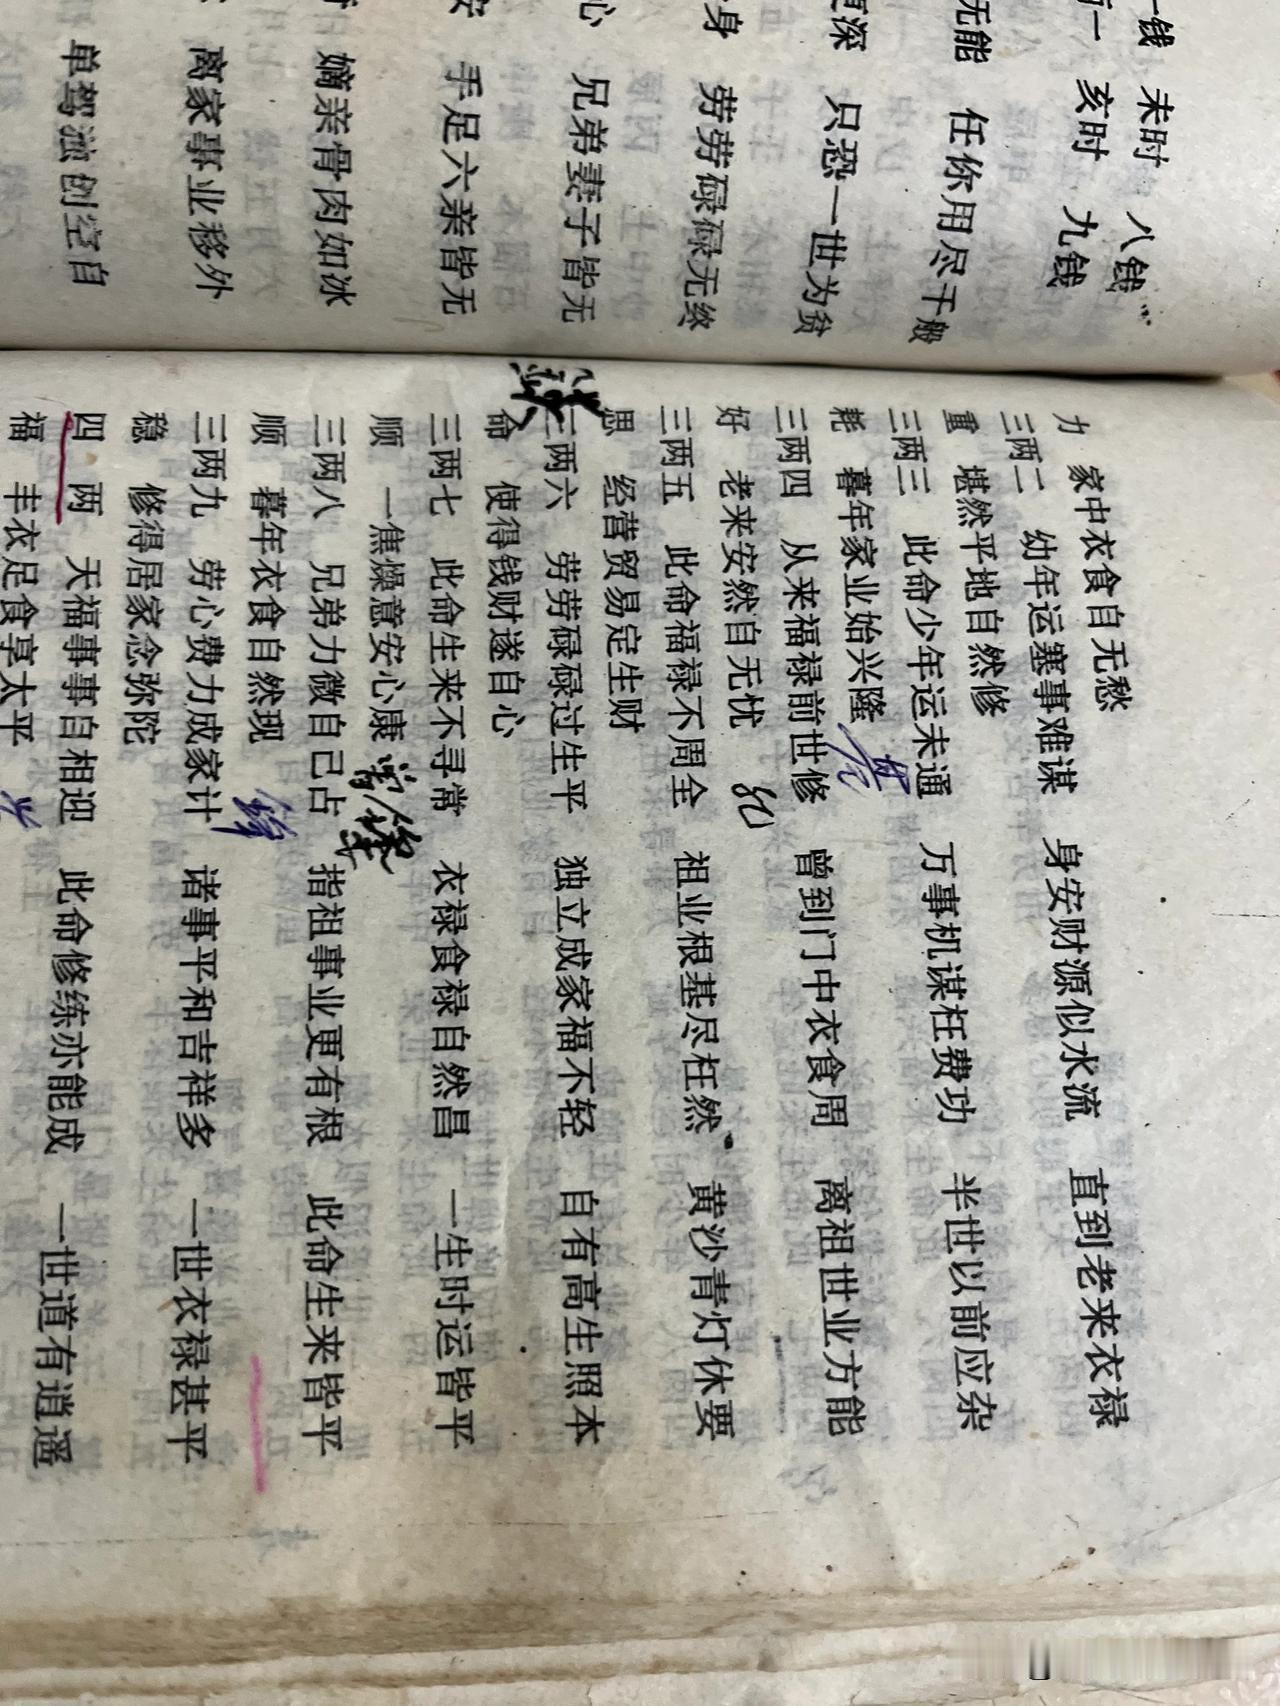 一钱 未时 八钱
一 亥时 九钱
无能 任你用尽千般
深 只恐一世为贫
身 劳劳碌碌无终
心 兄弟妻子皆无
安 手足六亲皆无
嫡亲骨肉如冰
离家事业移外
单驾滋创空自
力 家中衣食自无愁
三两二 幼年运塞事难谋 身安财源似水流 直到老来衣禄
重 堪然平地自然修
三两三 此命少年运未通 万事机谋枉费功 半世以前应杂
耗 暮年家业始兴隆
三两四 从来福禄前世修 曾到门中衣食周 离祖世业方能
好 老来安然自无忧
三两五 此命福禄不周全 祖业根基尽枉然 黄沙青灯休要
思 经营贸易定生财
三两六 劳劳碌碌过生平 独立成家福不轻 自有高生照本
命 使得钱财遂自心
三两七 此命生来不寻常 衣禄食禄自然昌 一生时运皆平
顺 一焦燥意安心康
三两八 兄弟力微自己占 指祖事业更有根 此命生来皆平
顺 暮年衣食自然现
三两九 劳心费力成家计 诸事平和吉祥多 一世衣禄甚平
稳 修得居家念弥陀
四 两 天福事事自相迎 此命修练亦能成 一世道有逍遥
福 丰衣足食享太平